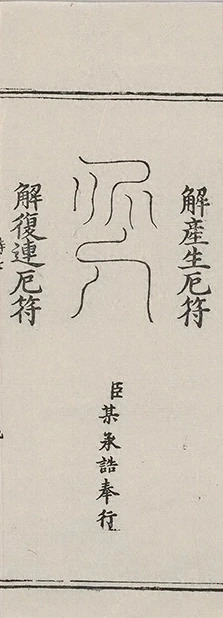 解產生厄符
臣某承誥奉行
解復連厄符